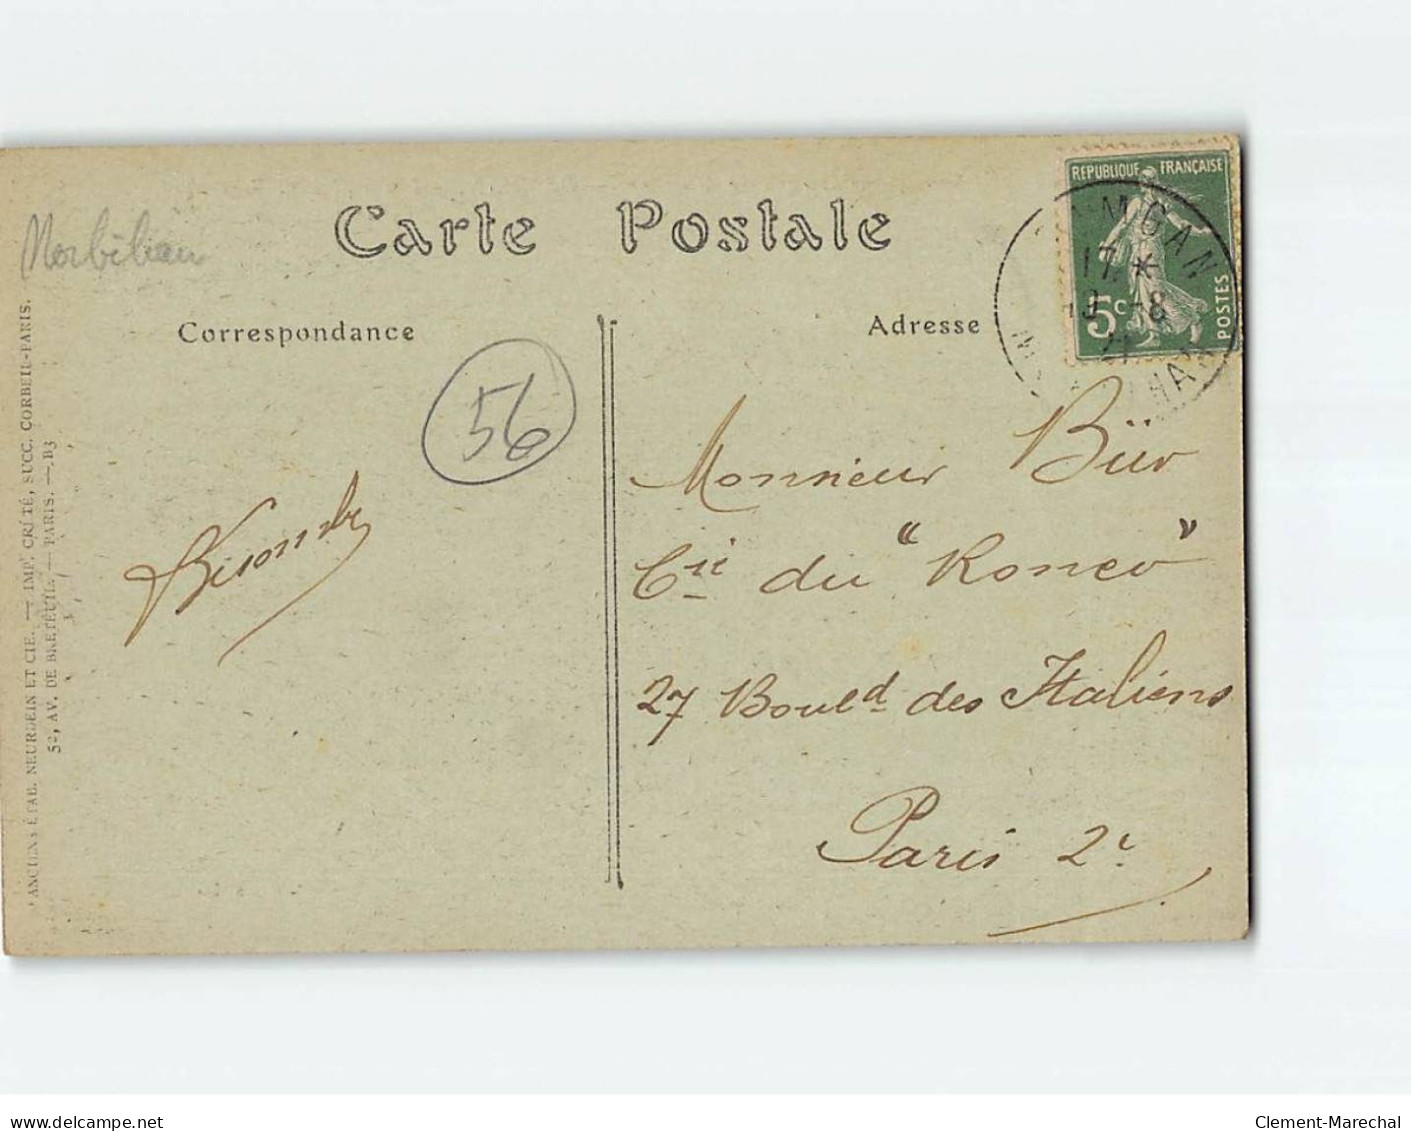 Carte Postale
Morbihan
Correspondance
Adresse
RÉPUBLIQUE FRANÇAISE
5c
POSTES
MGAN
17 *
-8
56
Monsieur
Cie du "Roneo"
27 Bould des Italiens
Paris 2e
ANCIENS ÉTAB. NEURDEIN ET CIE. — IMP. CRÉTÉ, SUCC. CORBEIL-PARIS.
52, AV. DE BRETEUIL. — PARIS. — B3
www.delcampe.net
Clement-Marechal